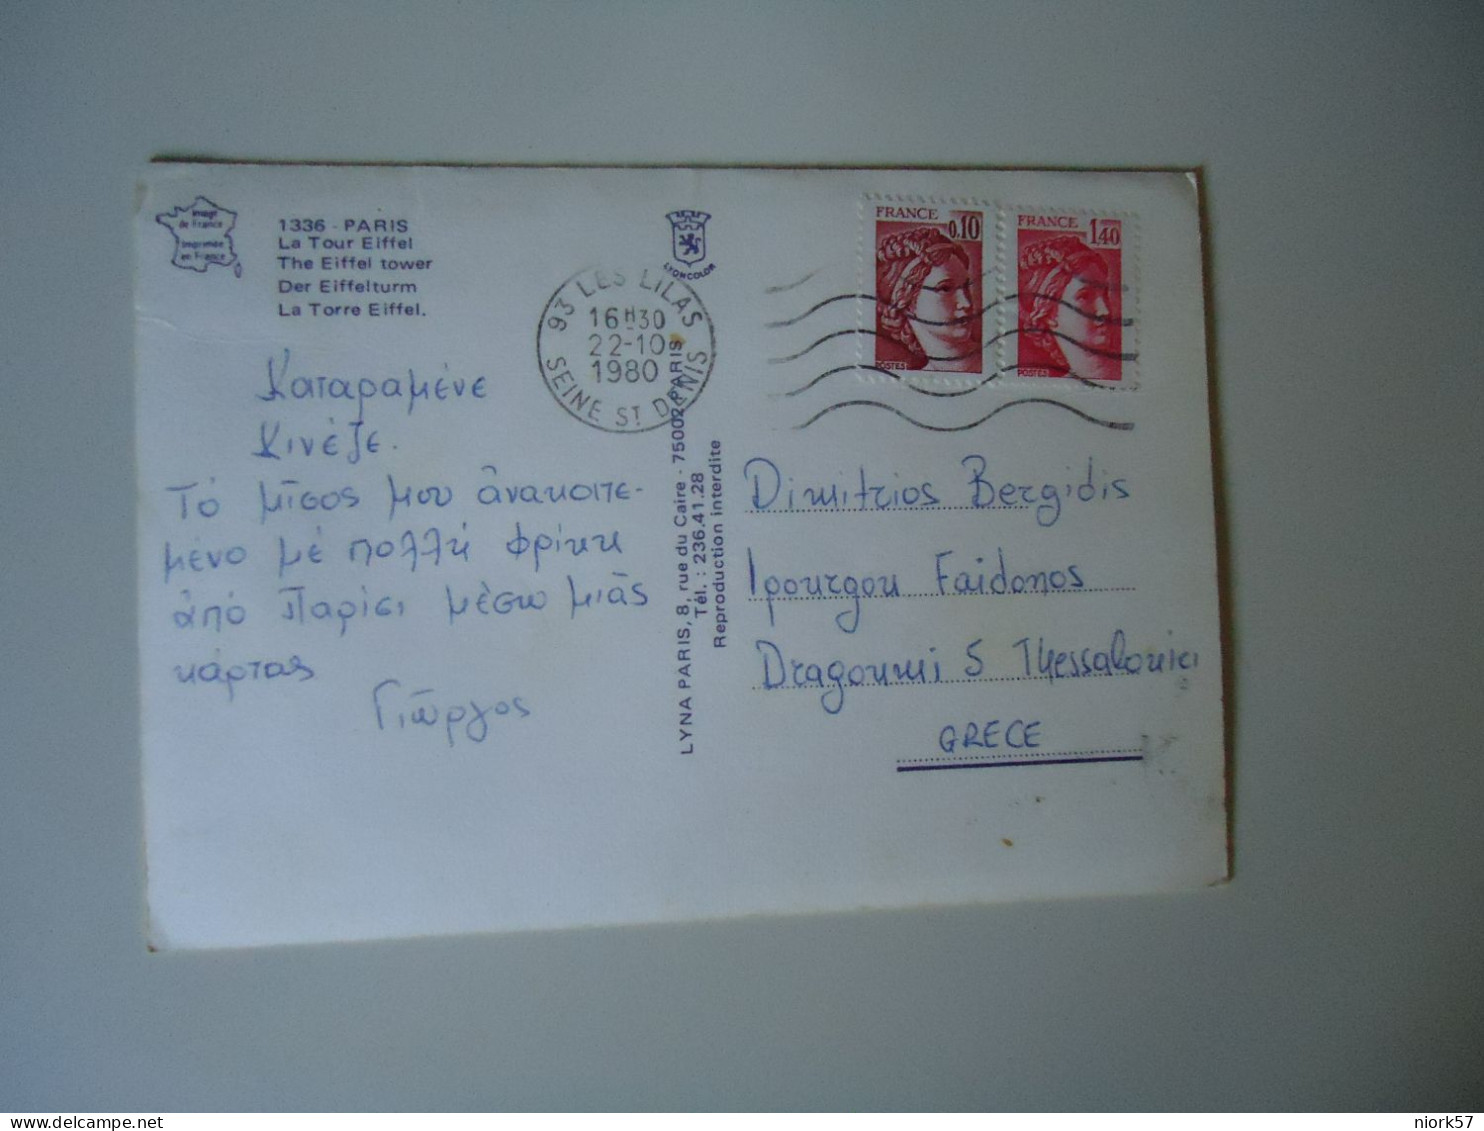 image
de France
imprimée
en France
1336 - PARIS
La Tour Eiffel
The Eiffel tower
Der Eiffelturm
La Torre Eiffel.
LYONCOLOR
93 LES LILAS
16H30
22-10
1980
SEINE ST DENIS
FRANCE 0,10
POSTES
FRANCE 1,40
POSTES
Καταραμένε
Κινέζε.
Τό μῖσος μου ἀνακοιτε-
μένο μέ πολλή φρίκη
ἀπό Παρίσι μέσω μιᾶς
κάρτας
Γιῶργος
LYNA PARIS, 8, rue du Caire - 75002 PARIS
Tél. : 236.41.28
Reproduction interdite
Dimitrios Bergidis
Ipourgou Faidonos
Dragoumi 5 Thessaloniki
GRECE
niork57